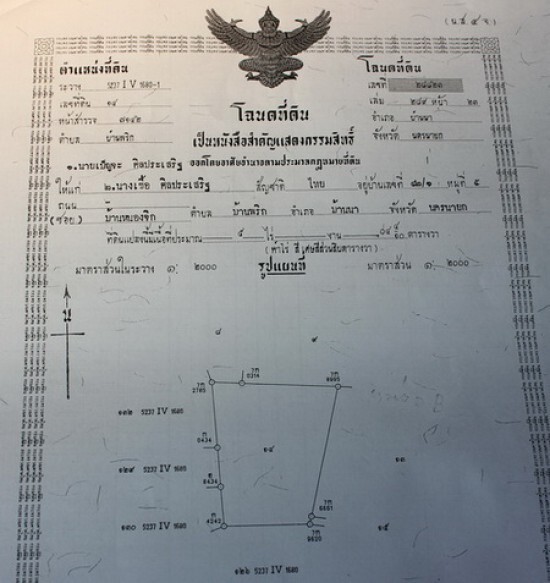 (น.ส.๔ จ)
ตำแหน่งที่ดิน
ระวาง 5237 IV 1680-1
เลขที่ดิน ๑๔
หน้าสำรวจ ๗๑๔๒
ตำบล บ้านพริก
โฉนดที่ดิน
เลขที่ ๒๘๔๒๓
เล่ม ๒๘๕ หน้า ๒๓
อำเภอ บ้านนา
จังหวัด นครนายก
โฉนดที่ดิน
เป็นหนังสือสำคัญแสดงกรรมสิทธิ์
ออกโดยอาศัยอำนาจตามประมวลกฎหมายที่ดิน
ให้แก่ สัญชาติ ไทย อยู่บ้านเลขที่ ๘๐/๑ หมู่ที่ ๕
ถนน
(ซอย) บ้านหนองขิก ตำบล บ้านพริก อำเภอ บ้านนา จังหวัด นครนายก
ที่ดินแปลงนี้มีเนื้อที่ประมาณ ๕ ไร่ - งาน ตารางวา
(ห้าไร่ สี่เศษสี่ส่วนสิบตารางวา)
มาตราส่วนในระวาง ๑: ๒๐๐๐ รูปแผนที่ มาตราส่วน ๑: ๒๐๐๐
น
๘ ๙
๑๓๒ 5237 IV 1680
๑๔
๑๒๙ 5237 IV 1680
๑๓
๑๓๐ 5237 IV 1680
๑๕
๑๒๖ 5237 IV 1680